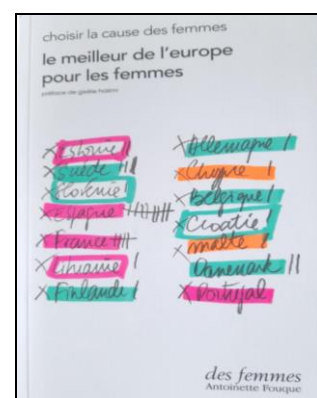 choisir la cause des femmes
le meilleur de l'europe
pour les femmes
préface de gisèle halimi
X Estonie
X Suède
X Slovénie
X Espagne
X France
X Lituanie
X Finlande
X Allemagne
X Chypre
X Belgique
X Croatie
X Malte
X Danemark
X Portugal
des femmes
Antoinette Fouque